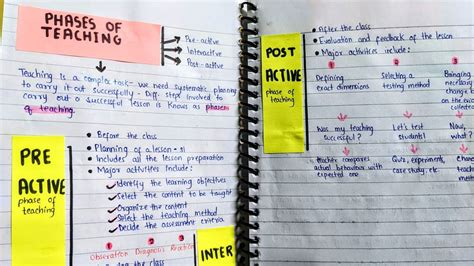 PHASES OF
TEACHING
Pre-active
Interactive
Post-active
Teaching is a complex task- we need systematic planning
to carry it out successfully - Diff. steps involved to
carry out a successful lesson is known as phases
of teaching.
PRE
ACTIVE
phase of
teaching
Before the class
Planning of a lesson
Includes all the lesson preparation
Major activities include:
Identify the learning objectives
Select the content to be taught
Organize the content
Select the teaching method
Decide the assessment criteria
1 2 3
Observation Diagnosis Reaction
the class
INTER
POST
ACTIVE
phase of
teaching
After the class
Evaluation and feedback of the lesson
Major activities include:
1 2 3
Defining
exact dimensions
Selecting a
testing method
necessary
change
on the
Was my teaching
successful?
Let's test
students!
Now,
about
Teacher compares
actual behaviour with
expected one.
Quiz, experiment,
case study, etc.